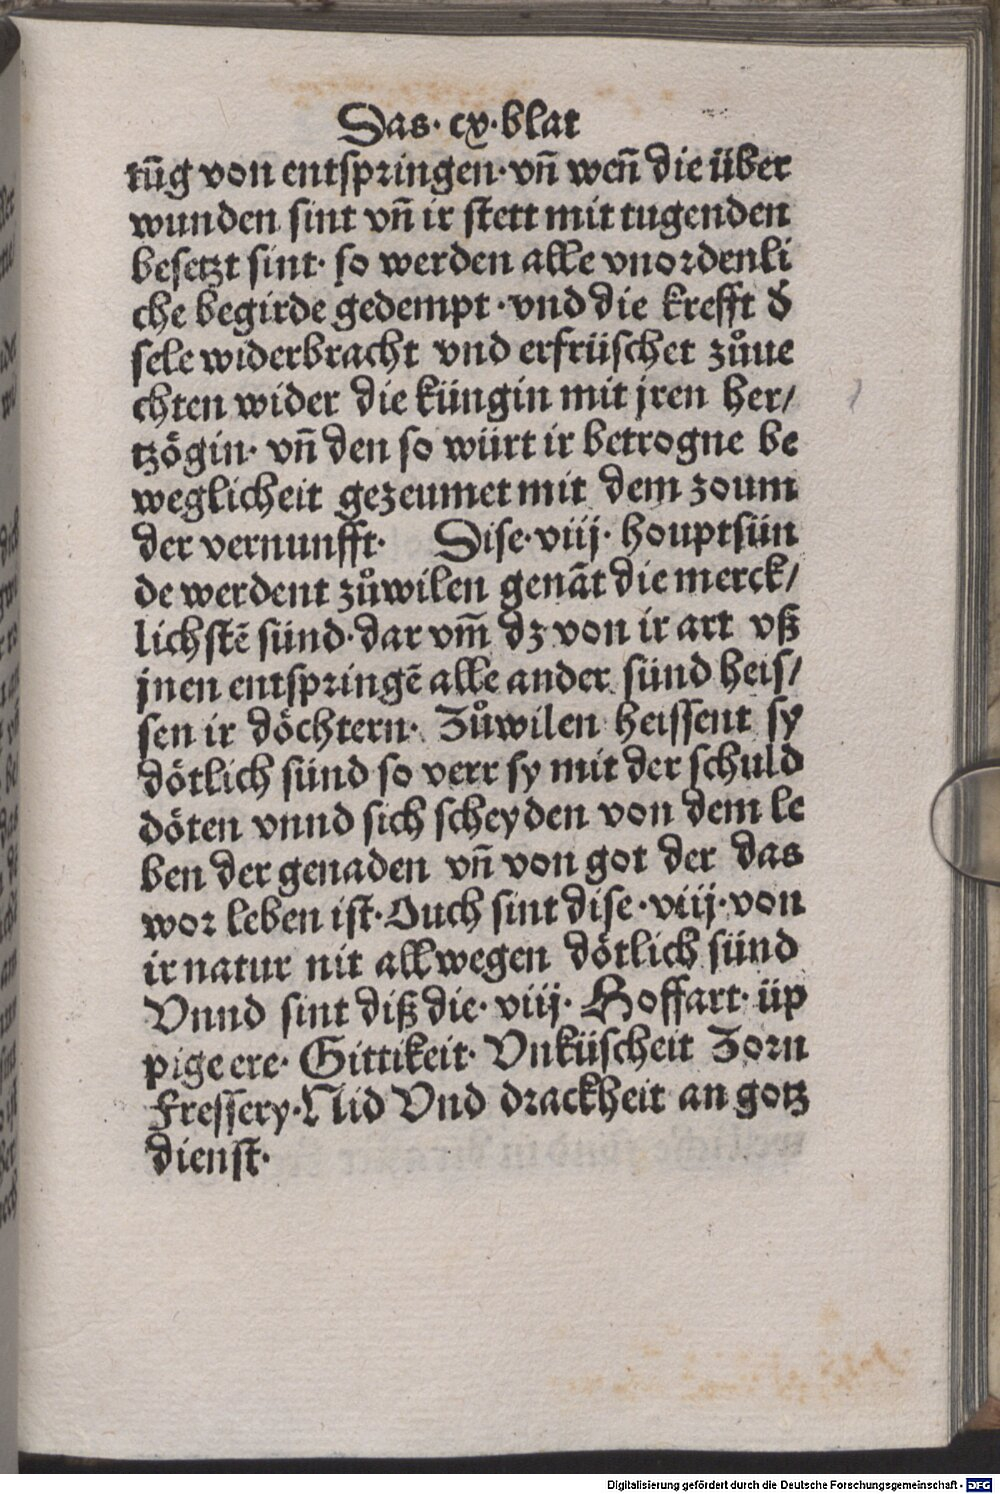 Das· cx·blat
kūg von entspringen·vn̄ wen̄ die über
wunden sint vn̄ ir stett mit tugenden
besetzt sint· so werden alle vnordenli
che begirde gedempt·vnd die krefft d̕
sele widerbracht vnd erfrüschet zůue
chten wider die küngin mit jren her/
tzögin· vn̄ den so würt ir betrogne be
weglicheit gezeumet mit dem zoum
der vernunfft· Dise·viij·houptsün
de werdent zůwilen genāt die merck/
lichstē sünd·dar vm̄ dz von ir art vß
jnen entspringē alle ander sünd heis/
sen ir döchtern· Zůwilen heissent sy
dötlich sünd so verr sy mit der schuld
döten vnnd sich scheyden von dem le
ben der genaden vn̄ von got der das
wor leben ist·Ouch sint dise·viij·von
ir natur nit allwegen dötlich sünd
Vnnd sint diß die·viij·Hoffart·üp
pige ere·Gittikeit·Vnküscheit Zorn
Fressery·Nid Vnd drackheit an gotz
dienst·
Digitalisierung gefördert durch die Deutsche Forschungsgemeinschaft - DFG